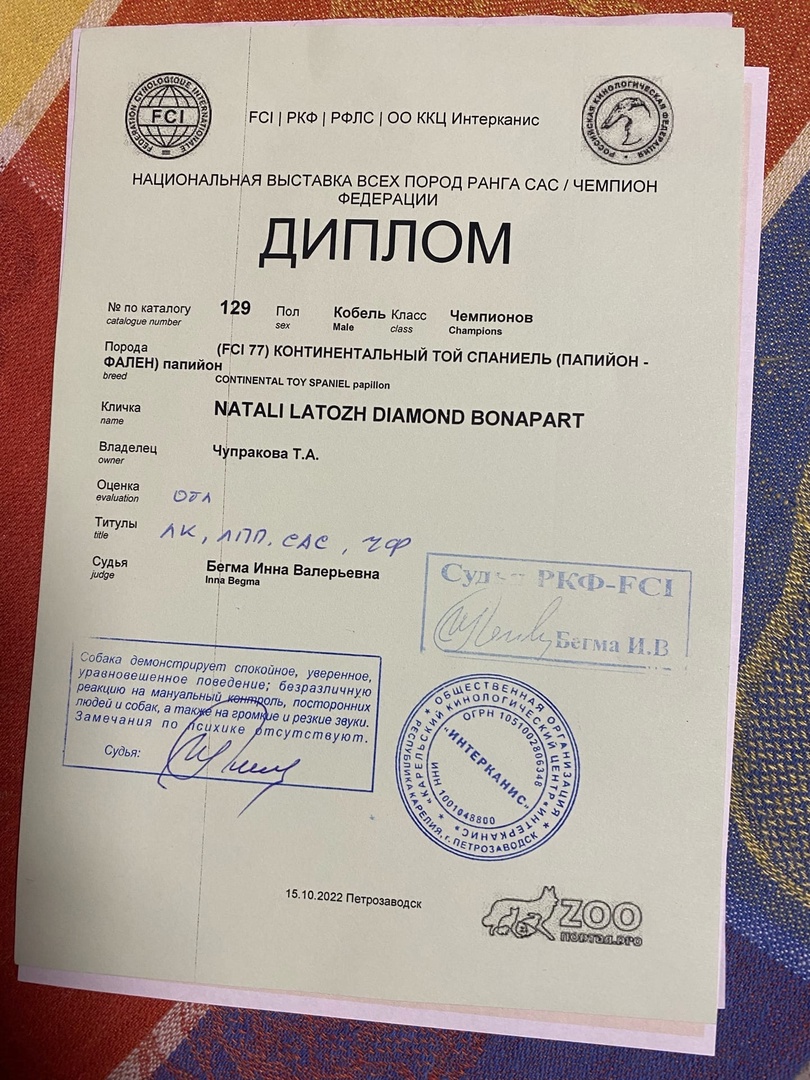 FEDERATION CYNOLOGIQUE INTERNATIONALE
FCI
FCI | РКФ | РФЛС | ОО ККЦ Интерканис
РОССИЙСКАЯ КИНОЛОГИЧЕСКАЯ ФЕДЕРАЦИЯ
НАЦИОНАЛЬНАЯ ВЫСТАВКА ВСЕХ ПОРОД РАНГА САС / ЧЕМПИОН
ФЕДЕРАЦИИ
ДИПЛОМ
№ по каталогу 129 Пол Кобель Класс Чемпионов
catalogue number sex Male class Champions
Порода (FCI 77) КОНТИНЕНТАЛЬНЫЙ ТОЙ СПАНИЕЛЬ (ПАПИЙОН -
ФАЛЕН) папийон
breed CONTINENTAL TOY SPANIEL papillon
Кличка NATALI LATOZH DIAMOND BONAPART
name
Владелец Чупракова Т.А.
owner
Оценка ОТЛ
evaluation
Титулы ЛК, ЛПП, САС, ЧФ
title
Судья Бегма Инна Валерьевна
judge Inna Begma
Судья РКФ-FCI
Бегма И.В
Собака демонстрирует спокойное, уверенное,
уравновешенное поведение; безразличную
реакцию на мануальный контроль, посторонних
людей и собак, а также на громкие и резкие звуки.
Замечания по психике отсутствуют.
Судья:
ОБЩЕСТВЕННАЯ ОРГАНИЗАЦИЯ
РЕСПУБЛИКА КАРЕЛИЯ, г. ПЕТРОЗАВОДСК
"КАРЕЛЬСКИЙ КИНОЛОГИЧЕСКИЙ ЦЕНТР "ИНТЕРКАНИС"
ОГРН 1051002806348
ИНН 1001048800
"ИНТЕРКАНИС"
15.10.2022 Петрозаводск
ZOO
ПОРТАЛ.PRO